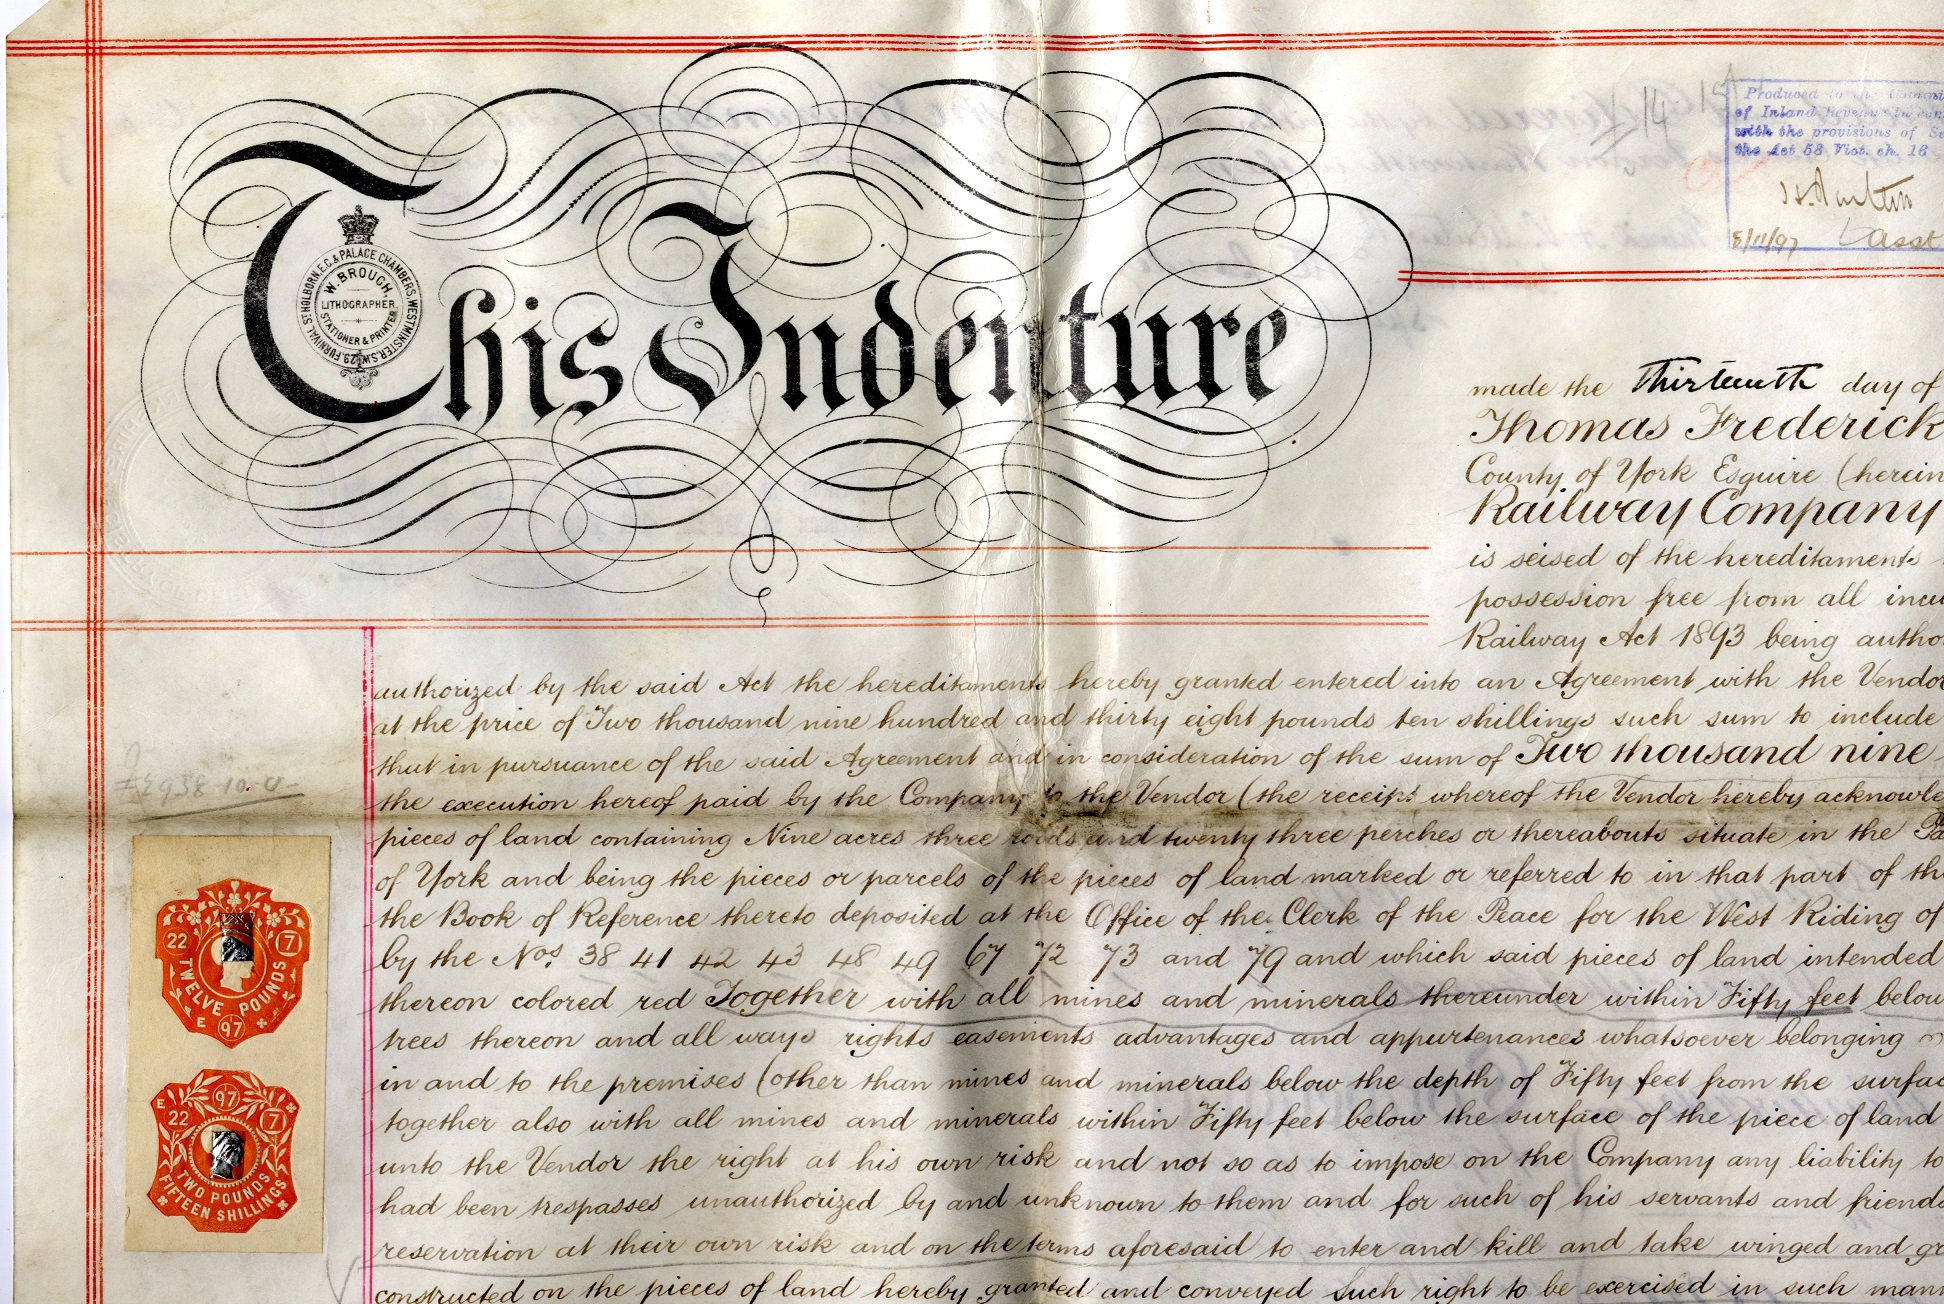 This Indenture
W. BROUGH,
LITHOGRAPHER,
STATIONER & PRINTER
29, FURNIVAL ST HOLBORN, E.C. & PALACE CHAMBERS, WESTMINSTER, S.W.
14
Produced to the
of Inland Revenue in
with the provisions of
the Act 58 Vict. ch. 16
8/11/97
Asst
made the Thirteenth day of
Thomas Frederick
County of York Esquire (herein
Railway Company
is seised of the hereditaments
possession free from all incu
Railway Act 1893 being autho
authorized by the said Act the hereditaments hereby granted entered into an Agreement with the Vendor
at the price of Two thousand nine hundred and thirty eight pounds ten shillings such sum to include
that in pursuance of the said Agreement and in consideration of the sum of Two thousand nine
£2938-10-0
the execution hereof paid by the Company to the Vendor (the receipt whereof the Vendor hereby acknowle
pieces of land containing Nine acres three roods and twenty three perches or thereabouts situate in the Pa
of York and being the pieces or parcels of the pieces of land marked or referred to in that part of th
the Book of Reference thereto deposited at the Office of the Clerk of the Peace for the West Riding of
by the Nos. 38 41 42 43 48 49 67 72 73 and 79 and which said pieces of land intended
thereon colored red Together with all mines and minerals thereunder within Fifty feet below
trees thereon and all ways rights easements advantages and appurtenances whatsoever belonging o
in and to the premises (other than mines and minerals below the depth of Fifty feet from the surfac
together also with all mines and minerals within Fifty feet below the surface of the piece of land
unto the Vendor the right at his own risk and not so as to impose on the Company any liability to
had been trespasses unauthorized by and unknown to them and for such of his servants and friends
reservation at their own risk and on the terms aforesaid to enter and kill and take winged and gr
constructed on the pieces of land hereby granted and conveyed Such right to be exercised in such mann
22
7
TWELVE POUNDS
E 97
E 97
22
7
TWO POUNDS
FIFTEEN SHILLINGS